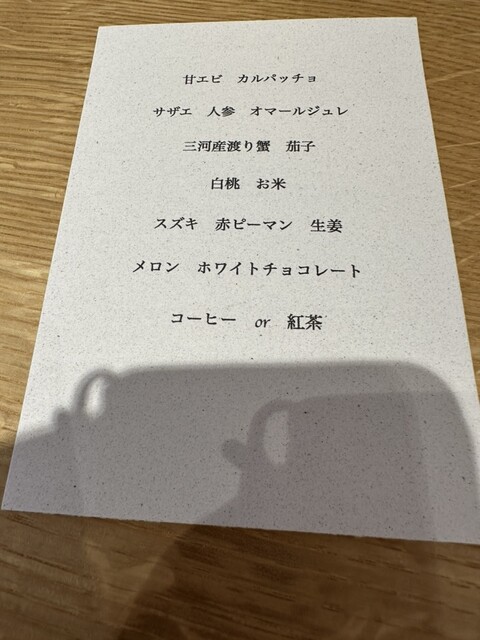 甘エビ　カルパッチョ
サザエ　人参　オマールジュレ
三河産渡り蟹　茄子
白桃　お米
スズキ　赤ピーマン　生姜
メロン　ホワイトチョコレート
コーヒー　or　紅茶